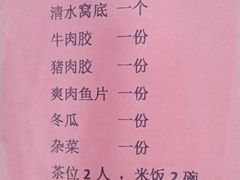 清水窝底 一个
牛肉胶 一份
猪肉胶 一份
爽肉鱼片 一份
冬瓜 一份
杂菜 一份
茶位2人，米饭2碗